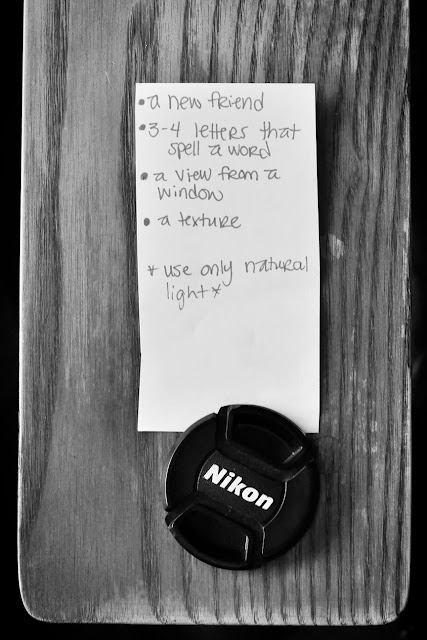 • a new friend
• 3-4 letters that
spell a word
• a view from a
window
• a texture
* use only natural
light *
Nikon